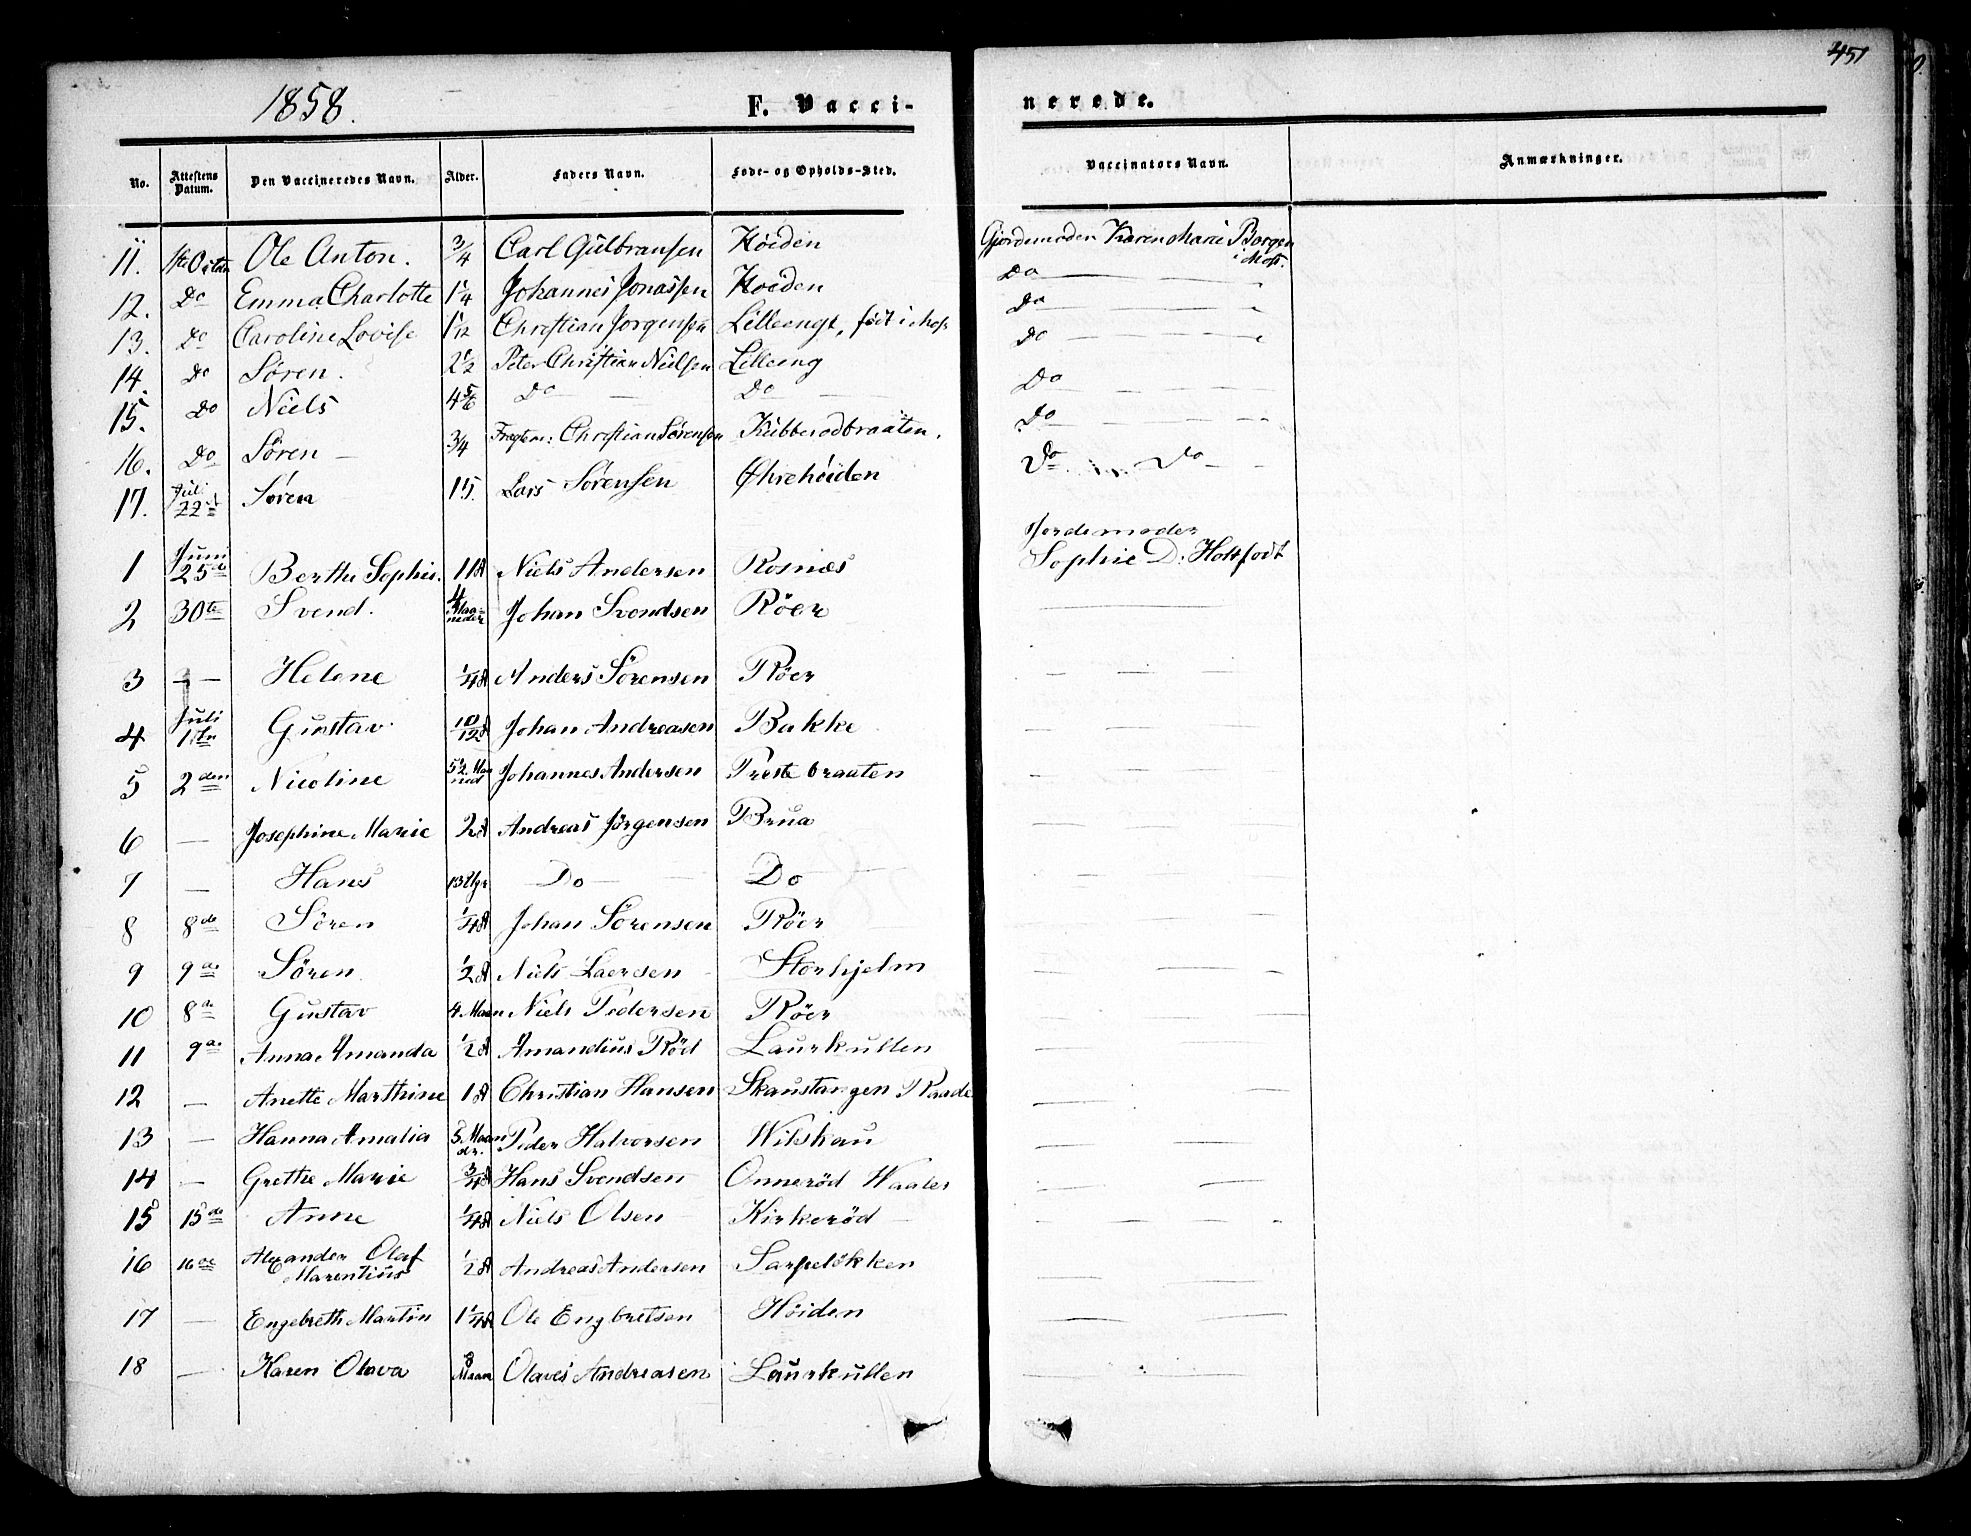 451
1858.
F. Vacci-
nerede.
No. Attestens Datum. Den Vaccineredes Navn. Alder. Faders Navn. Føde- og Opholds-Sted. Vaccinators Navn. Anmærkninger.
11. Ole Anton. 3/4 Carl Gulbransen Høiden Gjordemoder Karen Marie Borgen i Moss.
12. Do Emma Charlotte 1 1/4 Johannes Jonassen Høiden Do
13. Do Caroline Lovise 1 1/12 Christian Jørgensen Lilleengt, født i Moss Do
14. Do Søren. 2 1/2 Peter Christian Nielsen Lilleeng Do
15. Do Niels 4 5/6 Do — Do — Do
16. Do Søren — 3/4 Christian Sørensen Kubberødbraaten. Do
17. Juli 22d Søren 15. Lars Sørensen Øhrehøiden Do — Do —
1 Juni 25de Berthe Sophie. 11 A Niels Andersen Rosnæs Jordemoder Sophie D. Holtfodt
2 30te Svend. 4 Maaneder Johan Svendsen Röer
3 — Helene 1/4 A Anders Sörensen Röer
4 Juli 1ste Gustav 10/12 A Johan Andreasen Bakke
5 2den Nicoline 5 1/2 Maaned Johannes Andersen Prestebraaten
6 — Josephine Marie 2 A Andreas Jørgensen Brua
7 — Hans 13 Uger — Do — Do
8 8de Sören 1/4 A Johan Sörensen Röer
9 9de Sören 1/2 A Niels Laersen Storhjelm
10 8de Gustav 4 Maan Niels Pedersen Röer
11 9de Anna Amanda 1/2 A Amandius Röd Laurkullen
12 — Anette Marthine 1 A Christian Hansen Skaustangen Raade
13 — Hanna Amalia 5 Maandr. Peder Halvorsen Wilskau
14 — Grethe Marie 3/4 A Hans Svendsen Onneröd Waaler
15 15de Anne 1/4 A Niels Olsen Kirkeröd
16 16de Alexander Olaf Marentius 1/2 A Andreas Andersen Sarpelökken
17 — Engebreth Martin 1 1/4 A Ole Engbretsen Höiden
18 — Karen Olava 8 Maan Olaves Andreasen Laurkullen